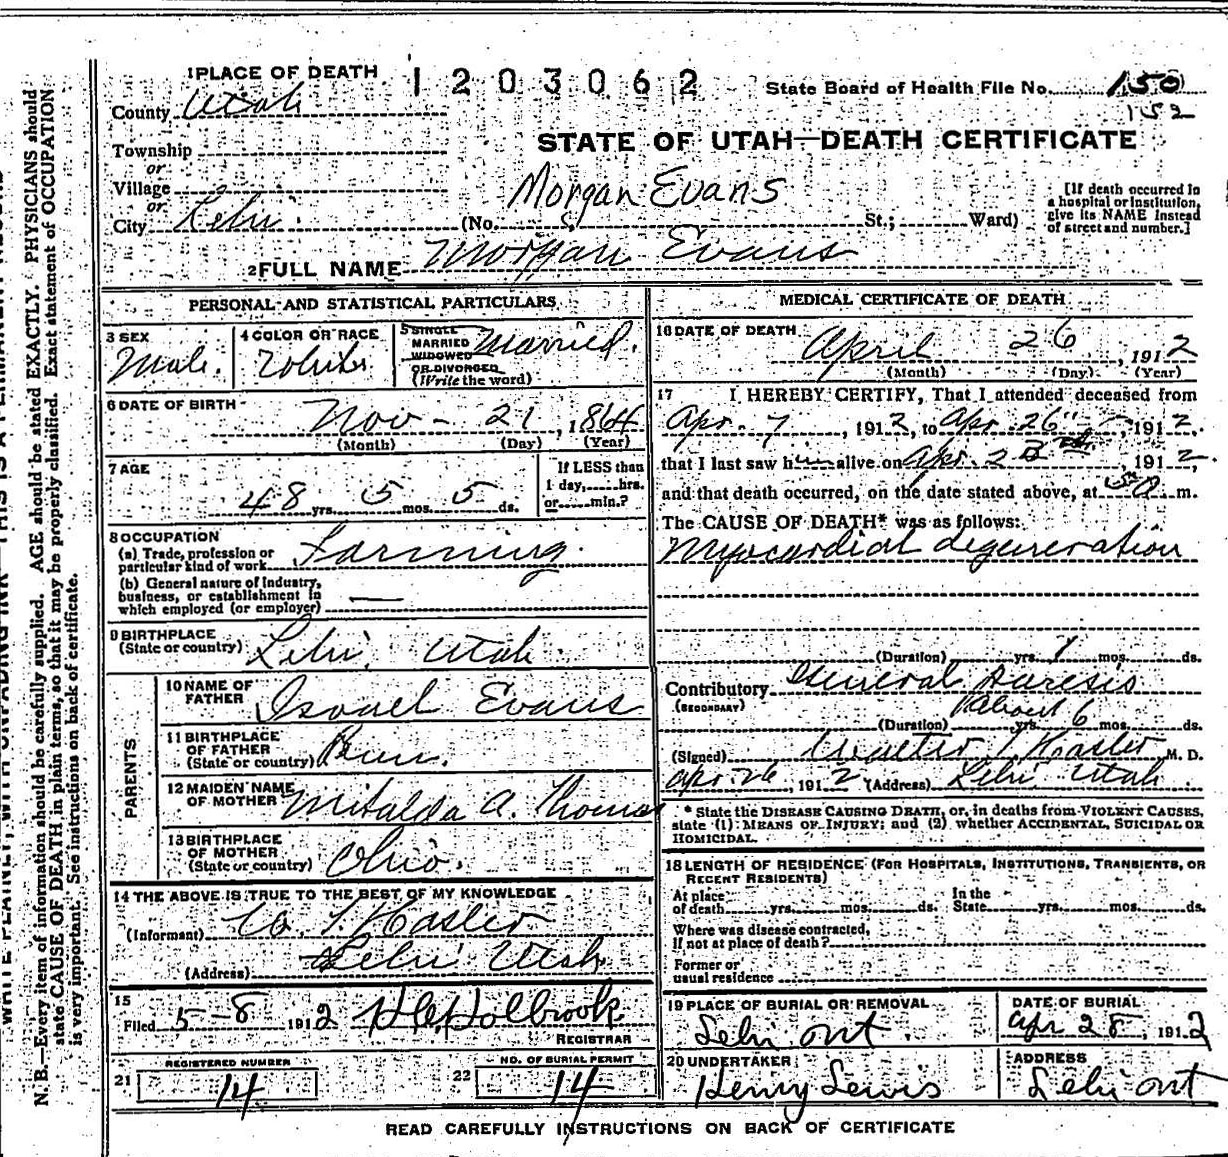 1 PLACE OF DEATH 1203062 State Board of Health File No. 150
152
County Utah
STATE OF UTAH—DEATH CERTIFICATE
Township
or
Village
or
City Lehi (No. Morgan Evans St.; Ward)
[If death occurred in
a hospital or institution,
give its NAME instead
of street and number.]
2 FULL NAME Morgan Evans
PERSONAL AND STATISTICAL PARTICULARS
3 SEX
Male.
4 COLOR OR RACE
White
5 SINGLE
MARRIED
WIDOWED
OR DIVORCED
(Write the word)
Married.
6 DATE OF BIRTH
Nov - 21, 1864
(Month) (Day) (Year)
7 AGE
48 yrs. 5 mos. 5 ds.
If LESS than
1 day, hrs.
or min.?
8 OCCUPATION
(a) Trade, profession or
particular kind of work Farming.
(b) General nature of industry,
business, or establishment in
which employed (or employer) —
9 BIRTHPLACE
(State or country) Lehi, Utah
PARENTS
10 NAME OF
FATHER Israel Evans
11 BIRTHPLACE
OF FATHER
(State or country)
12 MAIDEN NAME
OF MOTHER A. Thomas
13 BIRTHPLACE
OF MOTHER
(State or country) Ohio.
14 THE ABOVE IS TRUE TO THE BEST OF MY KNOWLEDGE
(Informant) W. T. Hasler
(Address) Lehi Utah
15
Filed 5-8 1912 Holbrook
REGISTRAR
REGISTERED NUMBER
21 14
NO. OF BURIAL PERMIT
22 14
MEDICAL CERTIFICATE OF DEATH
16 DATE OF DEATH
April 26, 1912
(Month) (Day) (Year)
17 I HEREBY CERTIFY, That I attended deceased from
Apr. 7, 1912, to Apr. 26, 1912,
that I last saw him alive on Apr. 1912,
and that death occurred, on the date stated above, at m.
The CAUSE OF DEATH* was as follows:
Myocardial degeneration
(Duration) yrs. 1 mos. ds.
Contributory General Paresis
(SECONDARY)
(Duration) About yrs. 6 mos. ds.
(Signed) Hasler M. D.
Apr 26, 1912 (Address) Lehi Utah
* State the DISEASE CAUSING DEATH, or, in deaths from VIOLENT CAUSES,
state (1) MEANS OF INJURY; and (2) whether ACCIDENTAL, SUICIDAL OR
HOMICIDAL.
18 LENGTH OF RESIDENCE (FOR HOSPITALS, INSTITUTIONS, TRANSIENTS, OR
RECENT RESIDENTS)
At place
of death yrs. mos. ds.
In the
State yrs. mos. ds.
Where was disease contracted,
if not at place of death?
Former or
usual residence
19 PLACE OF BURIAL OR REMOVAL
Lehi
DATE OF BURIAL
Apr 28, 1912
20 UNDERTAKER
Henry Lewis
ADDRESS
Lehi
READ CAREFULLY INSTRUCTIONS ON BACK OF CERTIFICATE
N. B.—Every item of information should be carefully supplied. AGE should be stated EXACTLY. PHYSICIANS should
state CAUSE OF DEATH in plain terms, so that it may be properly classified. Exact statement of OCCUPATION
is very important. See instructions on back of certificate.